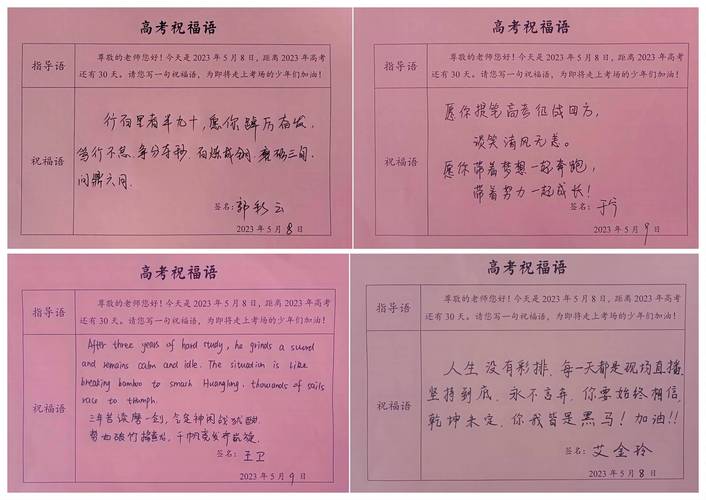 高考祝福语
指导语
尊敬的老师您好！今天是 2023 年 5 月 8 日，距离 2023 年高考
还有 30 天。请您写一句祝福语，为即将走上考场的少年们加油！
祝福语
行百里者半九十，愿你踔厉奋发，
笃行不怠，争分夺秒，百炼成钢，鏖战三旬，
问鼎六月。
签名：郭彩云
2023 年 5 月 8 日
高考祝福语
指导语
尊敬的老师您好！今天是 2023 年 5 月 8 日，距离 2023 年高考
还有 30 天。请您写一句祝福语，为即将走上考场的少年们加油！
祝福语
愿你提笔高考征战四方，
谈笑清风无恙。
愿你带着梦想一起奔跑，
带着努力一起成长！
签名：于
2023 年 5 月 9 日
高考祝福语
指导语
尊敬的老师您好！今天是 2023 年 5 月 8 日，距离 2023 年高考
还有 30 天。请您写一句祝福语，为即将走上考场的少年们加油！
祝福语
After three years of hard study, he grinds a sword
and remains calm and idle. The situation is like
breaking bamboo to smash Huanglong, thousands of sails
race to triumph.
三年苦读磨一剑，气定神闲战犹酣
势如破竹捣黄龙，千帆竞发齐凯旋。
签名：王卫
2023 年 5 月 9 日
高考祝福语
指导语
尊敬的老师您好！今天是 2023 年 5 月 8 日，距离 2023 年高考
还有 30 天。请您写一句祝福语，为即将走上考场的少年们加油！
祝福语
人生没有彩排，每一天都是现场直播，
坚持到底，永不言弃，你要始终相信，
乾坤未定，你我皆是黑马！加油！！
签名：艾金玲
2023 年 5 月 8 日